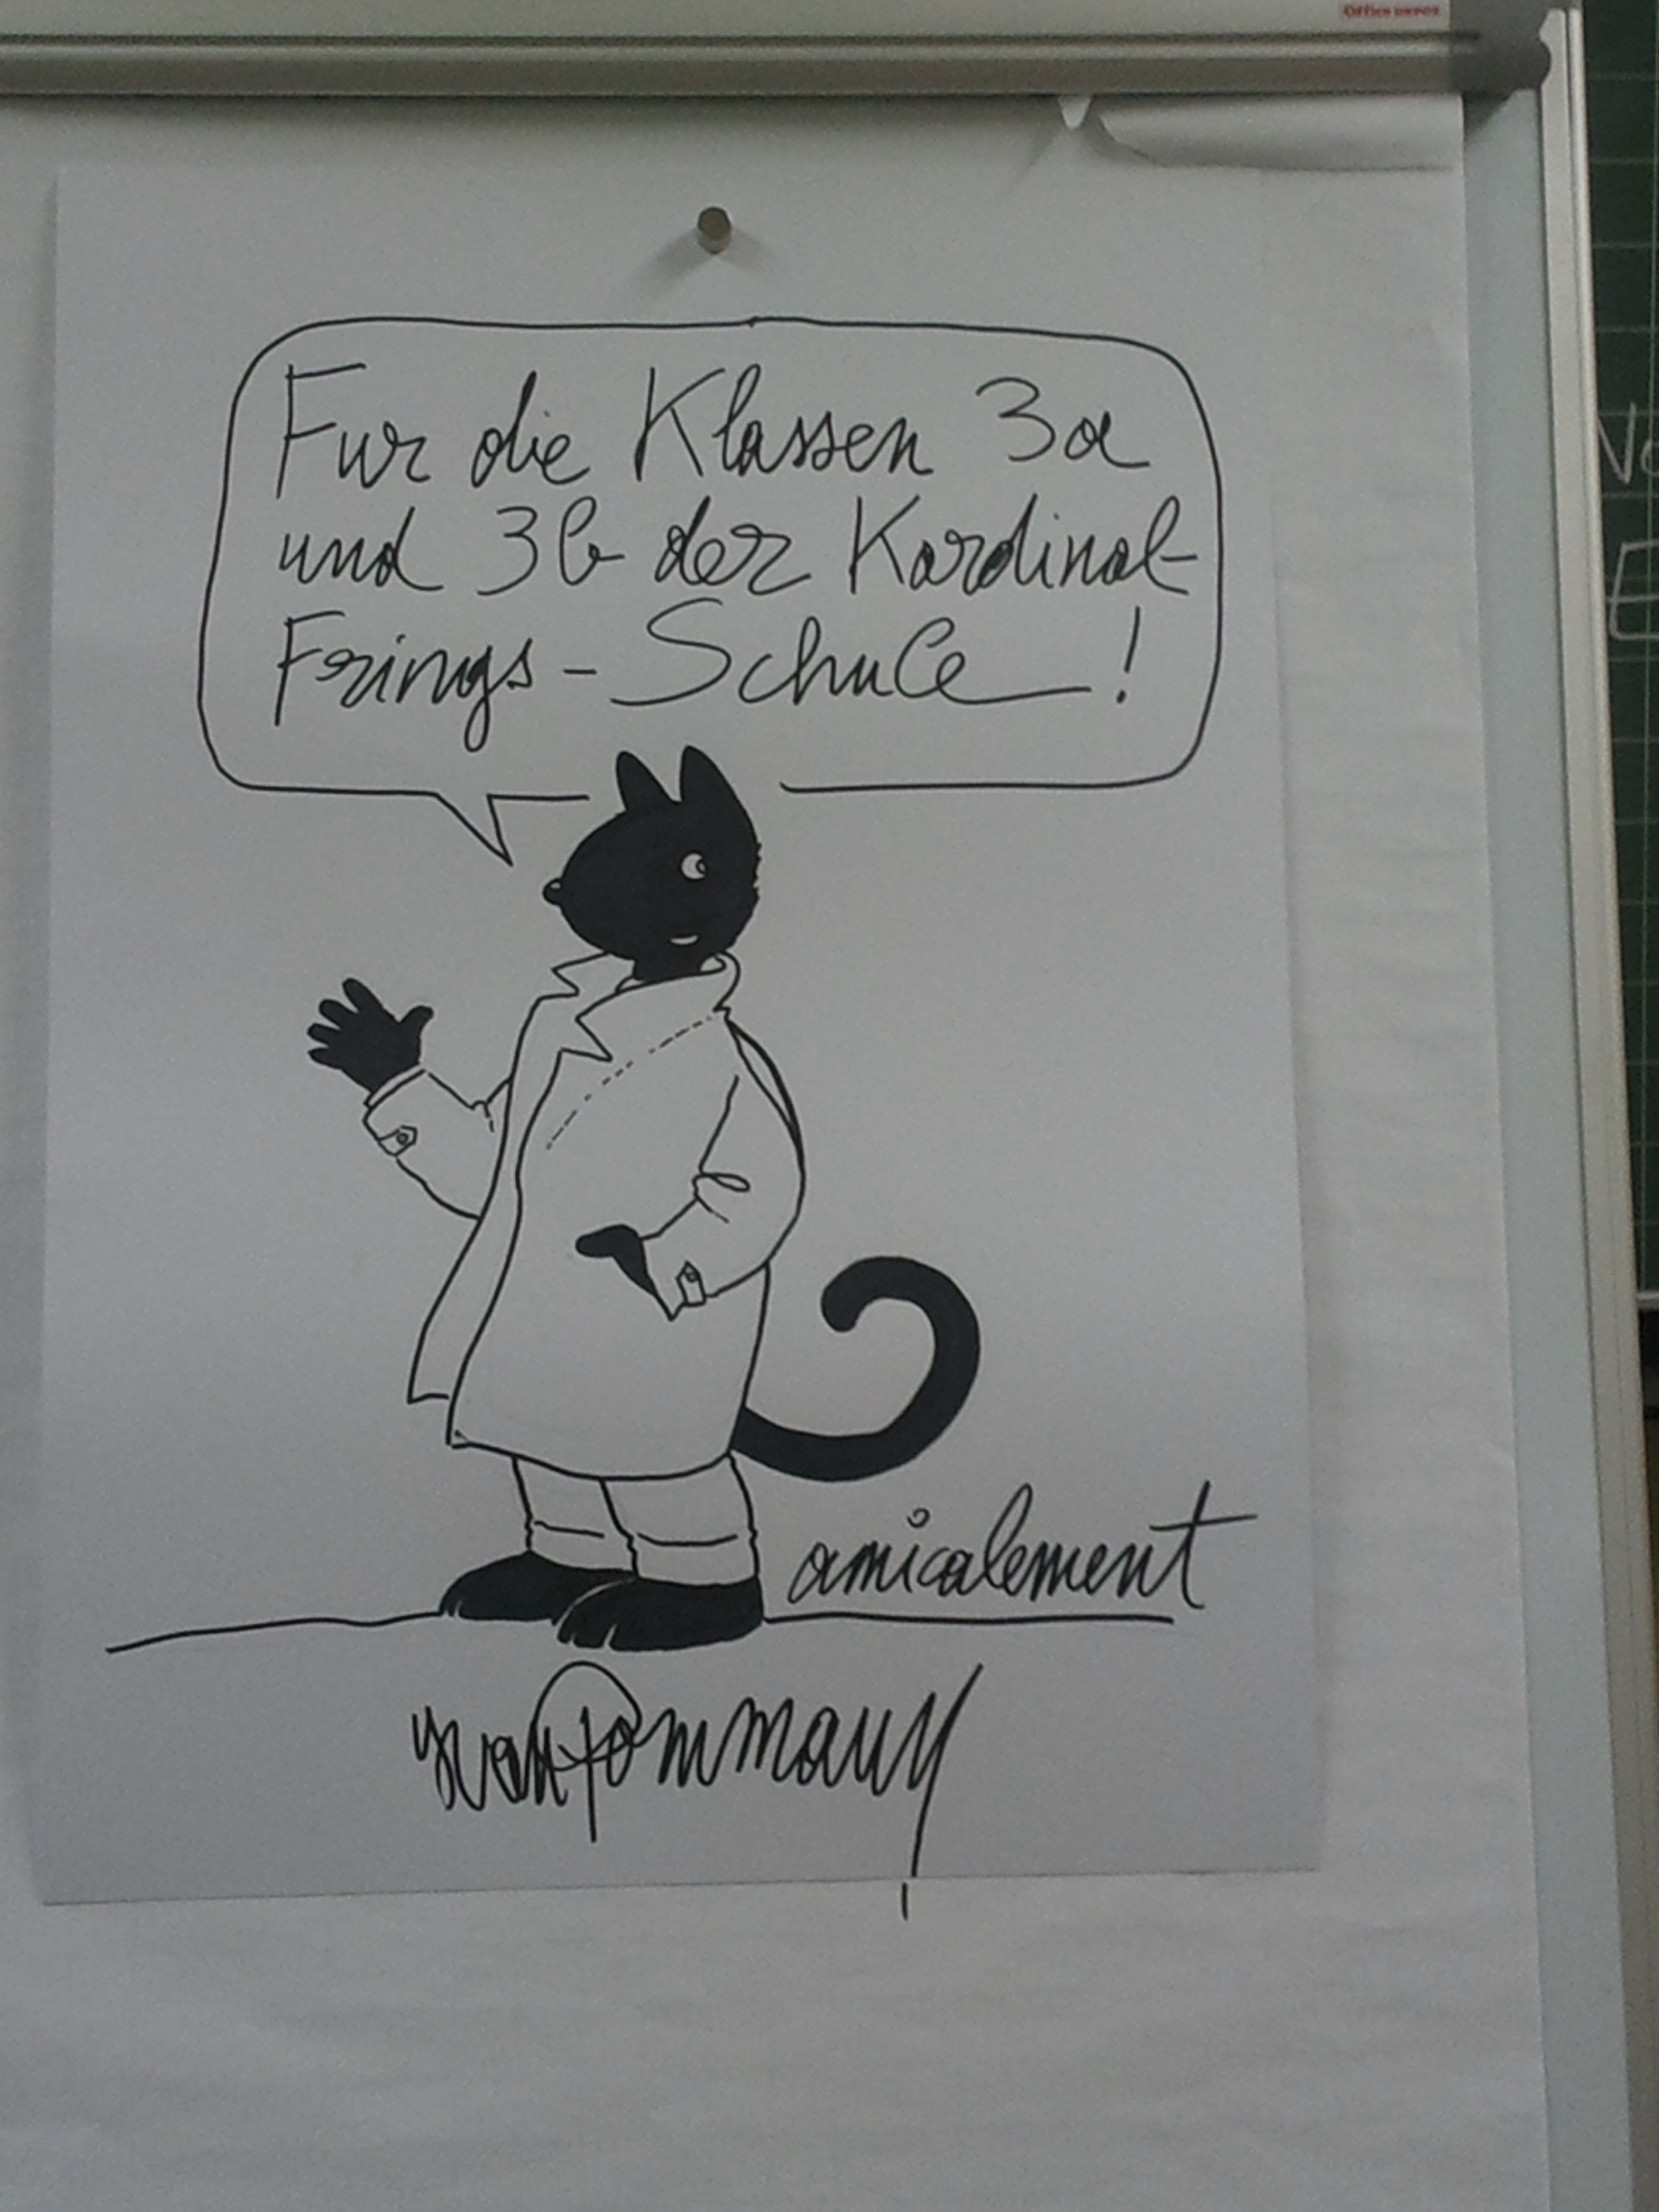 Fur die Klassen 3a
und 3b der Kardinal-
Frings-Schule!
amicalement
yvan Pommaux